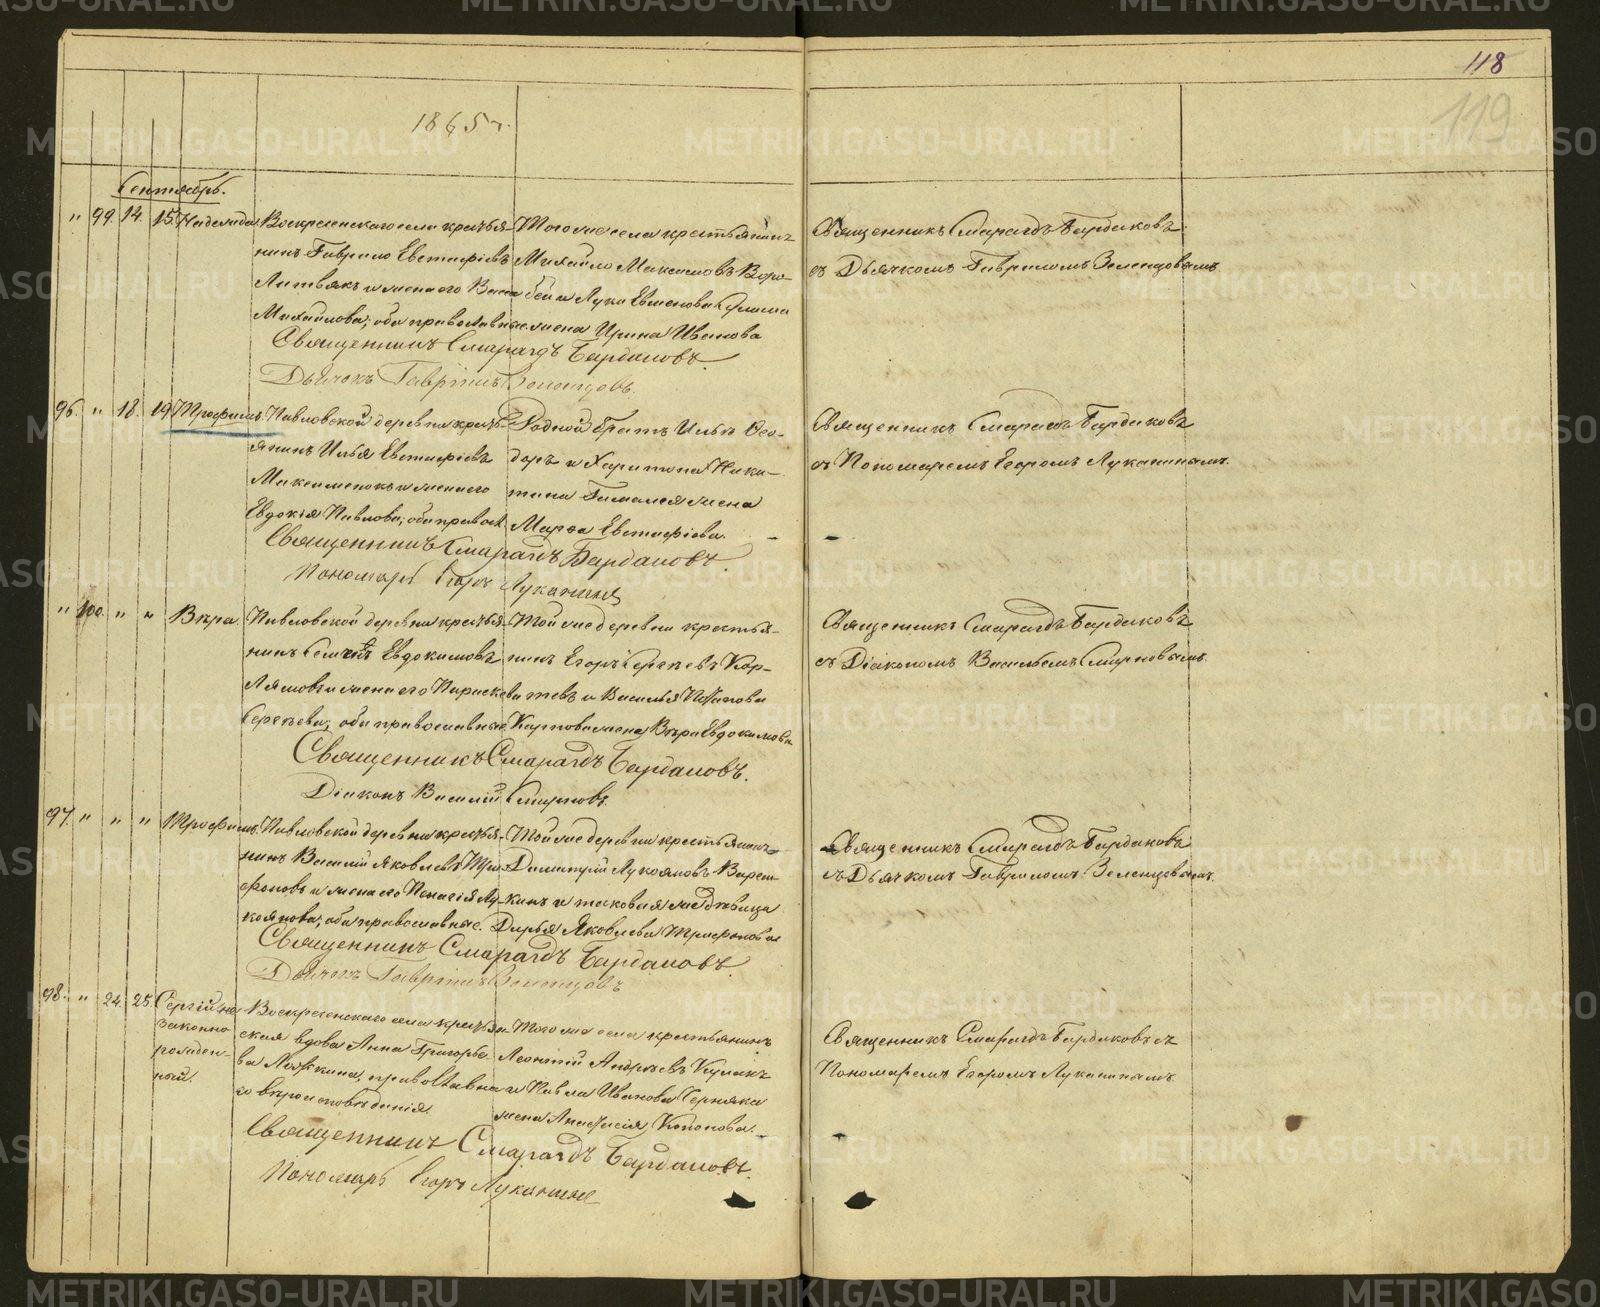 118
119
1865 г.
Сентябрь.
" 99. 14. 15. Надежда
Воскресенскаго села крестья-
нинъ Гаврило Евстафіевъ
Литвякъ и жена его Васса
Михайлова; оба православные.
Тогоже села крестьянинъ
Михайло Максимовъ Воро-
бей и Луки Евменова
жена Ирина Иванова
Священникъ Смарагдъ Бардаковъ.
Дьячокъ Гавріилъ Зеленцовъ.
Священникъ Смарагдъ Бардаковъ
съ Дьячкомъ Гавриломъ Зеленцовымъ.
96. " 18. 19. Трофимъ
Павловской деревни крест-
янинъ Илья Евстафіевъ
Максименокъ и жена его
Евдокія Павлова; оба правосл.
Родной братъ Ильи Ѳео-
доръ и Харитона Ники-
тина Гамалея жена
Марѳа Евстафіева.
Священникъ Смарагдъ Бардаковъ.
Пономарь Егоръ Луканинъ
Священникъ Смарагдъ Бардаковъ
съ Пономаремъ Егоромъ Луканинымъ.
" 100. " " Вѣра
Павловской деревни крестья-
нинъ Евдокимовъ
и жена его Параскева
Сергѣева; оба православные.
Тойже деревни крестья-
нинъ Егоръ Сергѣевъ Кор-
тевъ и Василья
жена Вѣра Евдокимова
Священникъ Смарагдъ Бардаковъ.
Діаконъ Василій Смирновъ.
Священникъ Смарагдъ Бардаковъ
съ Діакономъ Васильемъ Смирновымъ.
97. " " " Трофимъ
Павловской деревни крестья-
нинъ Василій Яковлевъ Три-
фоновъ и жена его Пелагія Лу-
коянова; оба православные.
Тойже деревни крестьянинъ
Димитрій Лукояновъ
и таковая же дѣвица
Дарья Яковлева Трифонова
Священникъ Смарагдъ Бардаковъ.
Дьячокъ Гавріилъ Зеленцовъ
Священникъ Смарагдъ Бардаковъ
съ Дьячкомъ Гавриломъ Зеленцовымъ.
98. " 24. 25. Сергій не-
законно-
рожден-
ный.
Воскресенскаго села крестьян-
ская вдова Анна Григорье-
ва Ложкина, православна-
го вѣроисповѣданія
Тогоже села крестьянинъ
Леонтій Андреевъ Кулакъ
и Павла Иванова Черняка
жена Анастасія Кононова.
Священникъ Смарагдъ Бардаковъ.
Пономарь Егоръ Луканинъ
Священникъ Смарагдъ Бардаковъ съ
Пономаремъ Егоромъ Луканинымъ.
METRIKI.GASO-URAL.RU